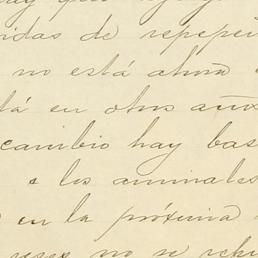 hay que
de repepei
no está ahora
tá en otros años
cambio hay bas
e los animales
en la próxima
no se